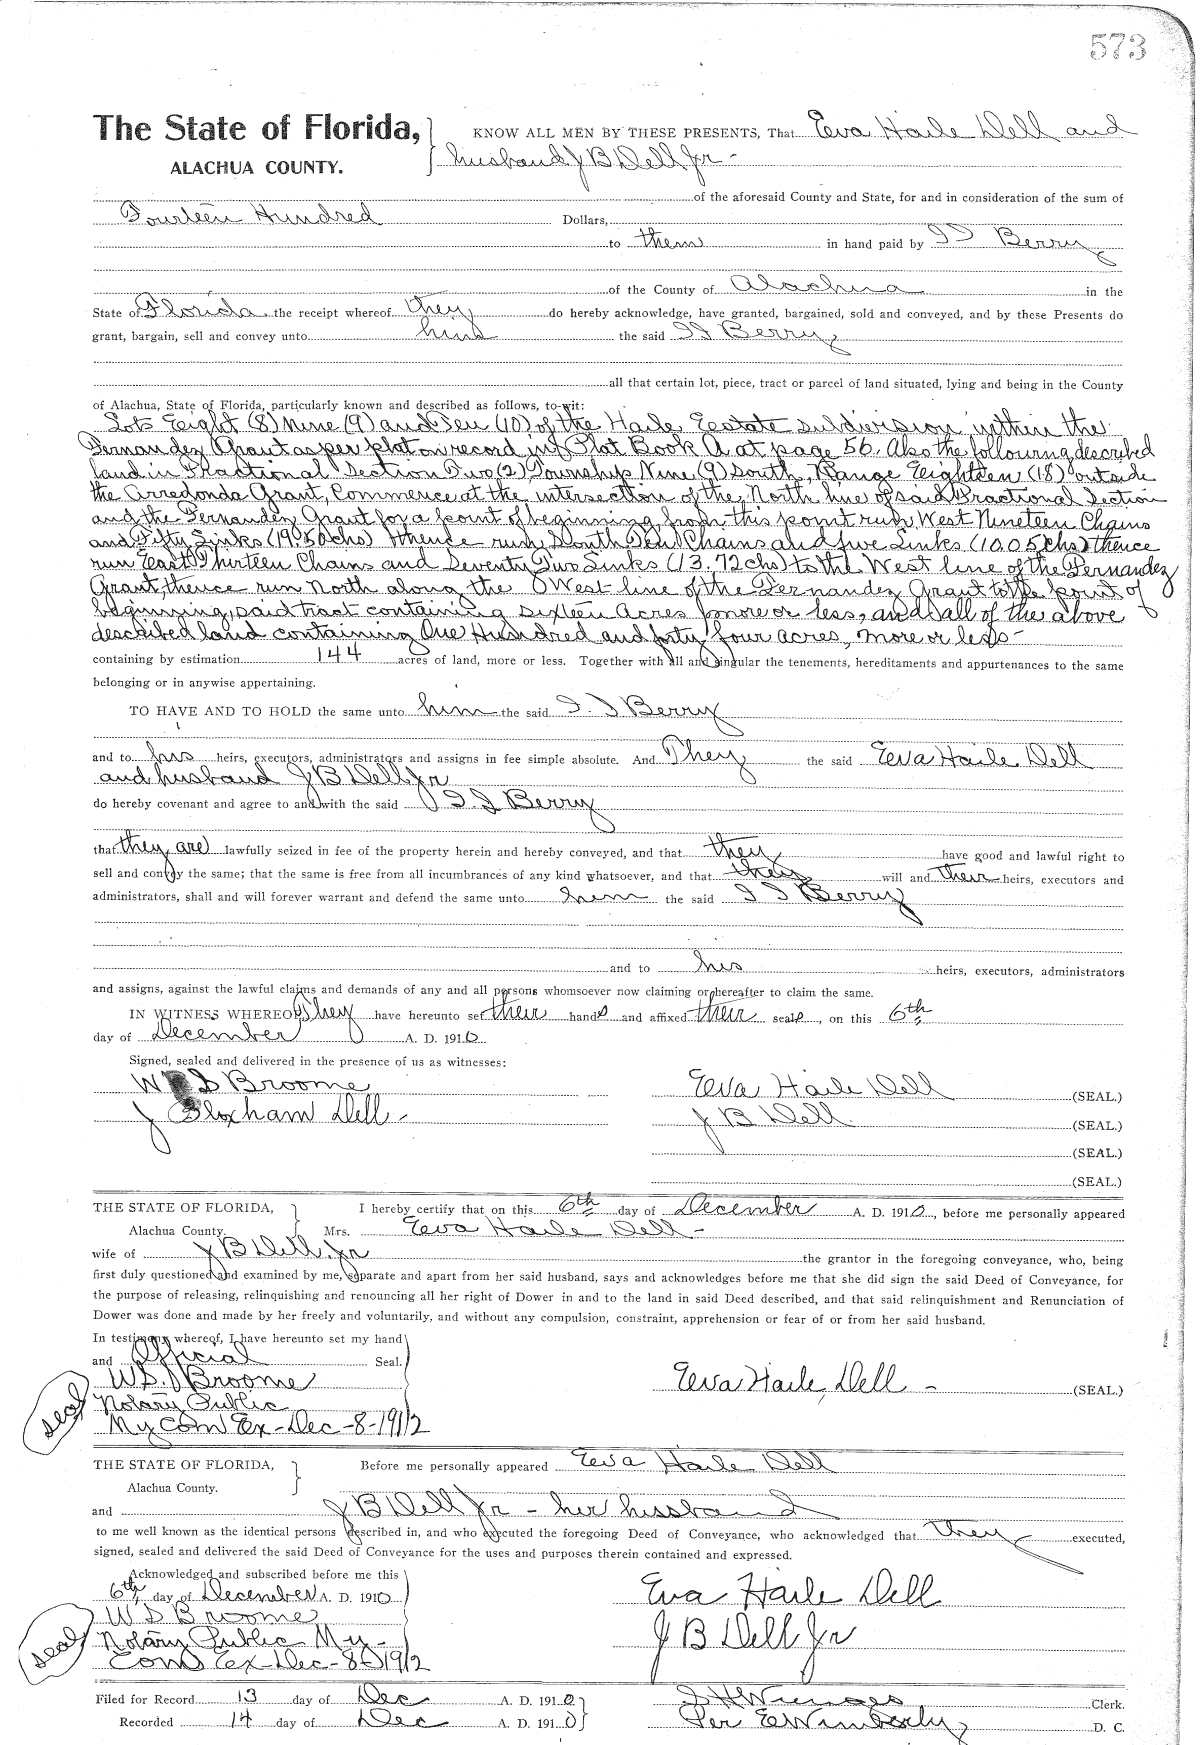 573
The State of Florida, KNOW ALL MEN BY THESE PRESENTS, That Eva Haile Dell and
ALACHUA COUNTY. husband J B Dell Jr -
of the aforesaid County and State, for and in consideration of the sum of
Fourteen Hundred Dollars,
to them in hand paid by Berry
of the County of Alachua in the
State of Florida the receipt whereof they do hereby acknowledge, have granted, bargained, sold and conveyed, and by these Presents do
grant, bargain, sell and convey unto him the said Berry
all that certain lot, piece, tract or parcel of land situated, lying and being in the County
of Alachua, State of Florida, particularly known and described as follows, to-wit:
Lots Eight (8) Nine (9) and Ten (10) of the Haile Estate subdivision within the
Fernandez Grant as per plat on record in Plat Book A at page 56. Also the following described
land in Fractional Section Two (2) Township Nine (9) South, Range Eighteen (18) outside
the Arredonda Grant, Commence at the intersection of the North line of said Fractional Section
and the Fernandez Grant for a point of beginning from this point run West Nineteen Chains
and Fifty Links (19.50 chs) thence run South Ten Chains and five Links (10.05 chs) thence
run East Thirteen Chains and Seventy Two Links (13.72 chs) to the West line of the Fernandez
Grant, thence run North along the West line of the Fernandez Grant to the point of
beginning, said tract containing sixteen Acres more or less, and all of the above
described land containing One Hundred and forty four acres, more or less -
containing by estimation 144 acres of land, more or less. Together with all and singular the tenements, hereditaments and appurtenances to the same
belonging or in anywise appertaining.
TO HAVE AND TO HOLD the same unto him the said Berry
and to his heirs, executors, administrators and assigns in fee simple absolute. And They the said Eva Haile Dell
and husband J B Dell Jr
do hereby covenant and agree to and with the said Berry
that they are lawfully seized in fee of the property herein and hereby conveyed, and that they have good and lawful right to
sell and convey the same; that the same is free from all incumbrances of any kind whatsoever, and that they will and their heirs, executors and
administrators, shall and will forever warrant and defend the same unto him the said Berry
and to his heirs, executors, administrators
and assigns, against the lawful claims and demands of any and all persons whomsoever now claiming or hereafter to claim the same.
IN WITNESS WHEREOF, They have hereunto set their hands and affixed their seals, on this 6th
day of December A. D. 1910
Signed, sealed and delivered in the presence of us as witnesses:
W S Broome Eva Haile Dell (SEAL.)
J Bloxham Dell - J B Dell (SEAL.)
(SEAL.)
(SEAL.)
THE STATE OF FLORIDA, I hereby certify that on this 6th day of December A. D. 1910, before me personally appeared
Alachua County. Mrs. Eva Haile Dell -
wife of J B Dell Jr the grantor in the foregoing conveyance, who, being
first duly questioned and examined by me, separate and apart from her said husband, says and acknowledges before me that she did sign the said Deed of Conveyance, for
the purpose of releasing, relinquishing and renouncing all her right of Dower in and to the land in said Deed described, and that said relinquishment and Renunciation of
Dower was done and made by her freely and voluntarily, and without any compulsion, constraint, apprehension or fear of or from her said husband.
In testimony whereof, I have hereunto set my hand
and Official Seal.
W S Broome Eva Haile Dell - (SEAL.)
seal Notary Public
My Com Ex - Dec - 8 - 1912
THE STATE OF FLORIDA, Before me personally appeared Eva Haile Dell
Alachua County.
and J B Dell Jr - her husband
to me well known as the identical persons described in, and who executed the foregoing Deed of Conveyance, who acknowledged that they executed,
signed, sealed and delivered the said Deed of Conveyance for the uses and purposes therein contained and expressed.
Acknowledged and subscribed before me this
6th day of December A. D. 1910 Eva Haile Dell
W S Broome
seal Notary Public My - J B Dell Jr
Com Ex - Dec - 8 - 1912
Filed for Record 13 day of Dec A. D. 1910 Clerk.
Recorded 14 day of Dec A. D. 1910 Per E Wimberly D. C.